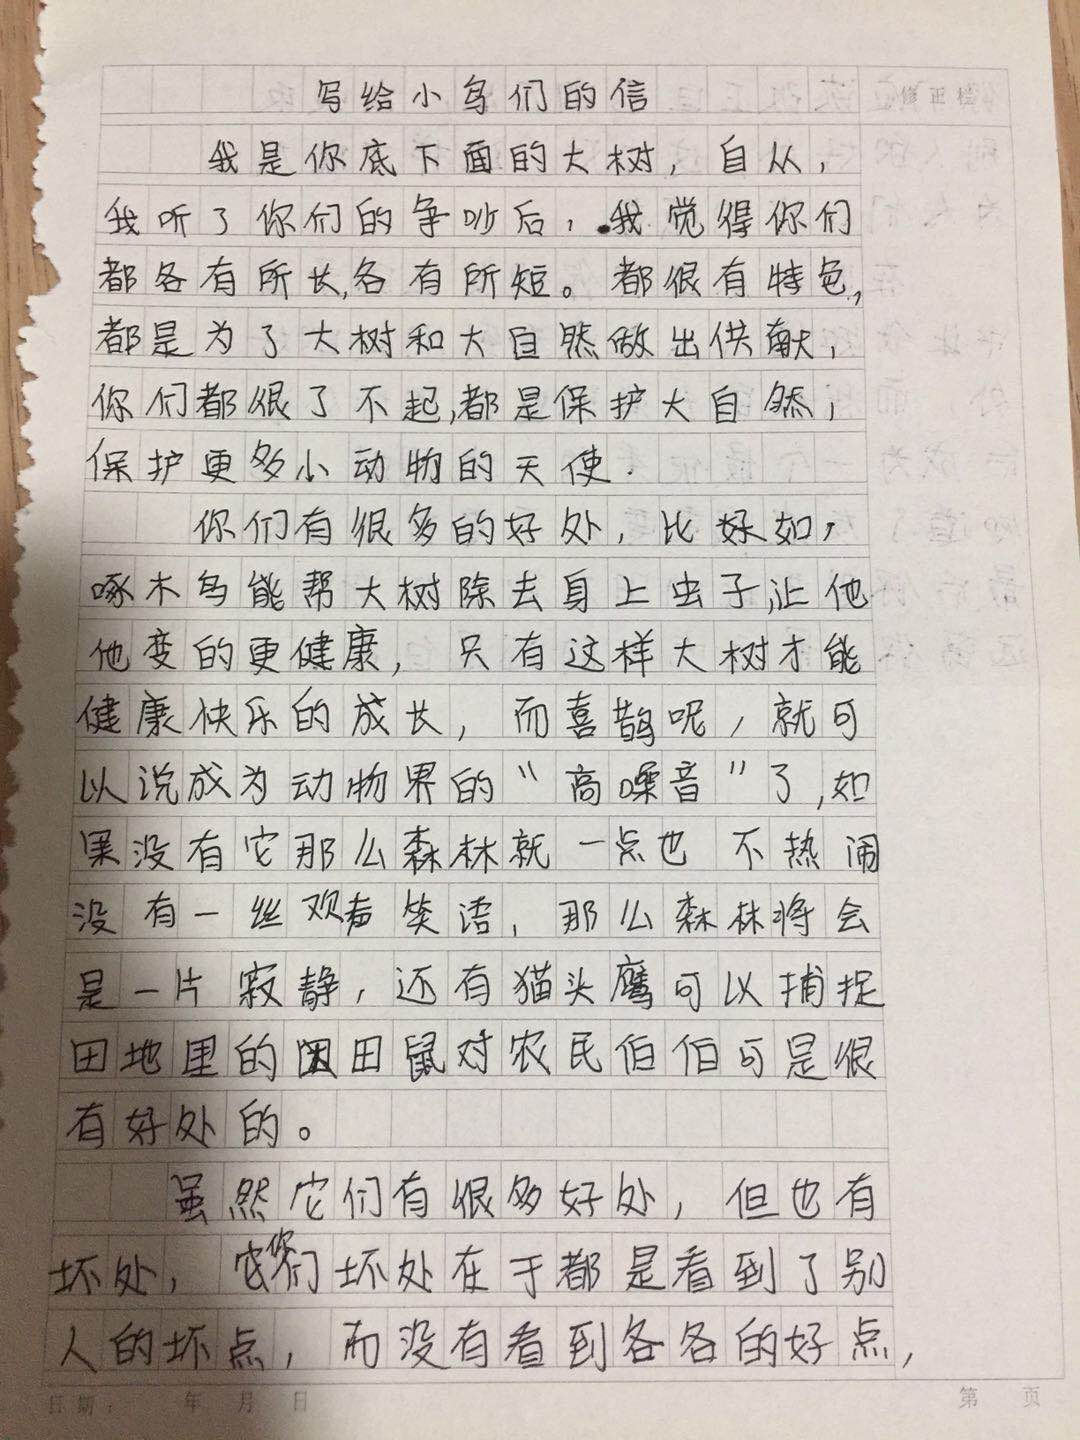 写给小鸟们的信
修正栏
我是你底下面的大树，自从，
我听了你们的争吵后，我觉得你们
都各有所长,各有所短。都很有特色,
都是为了大树和大自然做出供献，
你们都很了不起,都是保护大自然，
保护更多小动物的天使.
你们有很多的好处，比好如，
啄木鸟能帮大树除去身上虫子,让他
他变的更健康，只有这样大树才能
健康快乐的成长，而喜鹊呢，就可
以说成为动物界的“高嗓音”了,如
果没有它那么森林就一点也不热闹
没有一丝欢声笑语，那么森林将会
是一片寂静，还有猫头鹰可以捕捉
田地里的田鼠对农民伯伯可是很
有好处的。
虽然它们有很多好处，但也有
坏处，你们坏处在于都是看到了别
人的坏点，而没有看到各各的好点，
日期： 年 月 日
第 页